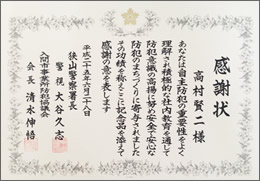 感謝状
高村賢二様
あなたは自主防犯の重要性をよく
理解され積極的な社内教育を通して
防犯意識の高揚に努め安全で安心な
防犯のまちづくりに寄与されました
その功績を称えここに記念品を添えて
感謝の意を表します
平成二十五年六月二十八日
狭山警察署長
警視 大谷久志
入間市事業所防犯協議会
会長 清水伸悟